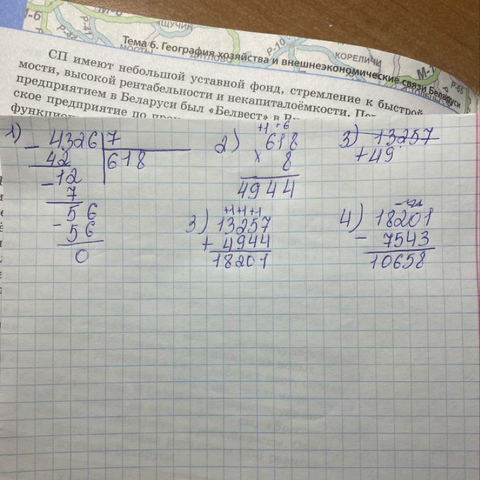 Тема 6. География хозяйства и внешнеэкономические связи Беларуси
КОРЕЛИЧИ
СП имеют небольшой уставной фонд, стремление к быстрой
мости, высокой рентабельности и некапиталоёмкости.
предприятием в Беларуси был «Белвест» в
ское предприятие по
функцион
1) - 4326 | 7
42 618
- 12
7
56
- 56
0
2) +1 +6
618
× 8
4944
3) 13257
+49
3) +1+1+1
13257
+ 4944
18201
4) 18201
- 7543
10658